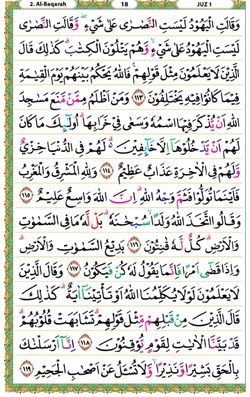 2. Al-Baqarah 18 JUZ 1
وَقَالَتِ الْيَهُوْدُ لَيْسَتِ النَّصٰرٰى عَلٰى شَيْءٍ ۖ وَّقَالَتِ النَّصٰرٰى
لَيْسَتِ الْيَهُوْدُ عَلٰى شَيْءٍ ۙ وَّهُمْ يَتْلُوْنَ الْكِتٰبَ ؕ كَذٰلِكَ قَالَ
الَّذِيْنَ لَا يَعْلَمُوْنَ مِثْلَ قَوْلِهِمْ ۚ فَاللّٰهُ يَحْكُمُ بَيْنَهُمْ يَوْمَ الْقِيٰمَةِ
فِيْمَا كَانُوْا فِيْهِ يَخْتَلِفُوْنَ ﴿۱۱۳﴾ وَمَنْ اَظْلَمُ مِمَّنْ مَّنَعَ مَسٰجِدَ
اللّٰهِ اَنْ يُّذْكَرَ فِيْهَا اسْمُهٗ وَسَعٰى فِيْ خَرَابِهَا ؕ اُولٰٓئِكَ مَا كَانَ
لَهُمْ اَنْ يَّدْخُلُوْهَآ اِلَّا خَآئِفِيْنَ ؕ لَهُمْ فِى الدُّنْيَا خِزْيٌ
وَّلَهُمْ فِى الْاٰخِرَةِ عَذَابٌ عَظِيْمٌ ﴿۱۱۴﴾ وَلِلّٰهِ الْمَشْرِقُ وَالْمَغْرِبُ
فَاَيْنَمَا تُوَلُّوْا فَثَمَّ وَجْهُ اللّٰهِ ؕ اِنَّ اللّٰهَ وَاسِعٌ عَلِيْمٌ ﴿۱۱۵﴾
وَقَالُوا اتَّخَذَ اللّٰهُ وَلَدًا ۙ سُبْحٰنَهٗ ؕ بَلْ لَّهٗ مَا فِى السَّمٰوٰتِ
وَالْاَرْضِ ؕ كُلٌّ لَّهٗ قٰنِتُوْنَ ﴿۱۱۶﴾ بَدِيْعُ السَّمٰوٰتِ وَالْاَرْضِ ؕ
وَاِذَا قَضٰٓى اَمْرًا فَاِنَّمَا يَقُوْلُ لَهٗ كُنْ فَيَكُوْنُ ﴿۱۱۷﴾ وَقَالَ الَّذِيْنَ
لَا يَعْلَمُوْنَ لَوْلَا يُكَلِّمُنَا اللّٰهُ اَوْ تَاْتِيْنَآ اٰيَةٌ ؕ كَذٰلِكَ
قَالَ الَّذِيْنَ مِنْ قَبْلِهِمْ مِّثْلَ قَوْلِهِمْ ؕ تَشَابَهَتْ قُلُوْبُهُمْ ؕ
قَدْ بَيَّنَّا الْاٰيٰتِ لِقَوْمٍ يُّوْقِنُوْنَ ﴿۱۱۸﴾ اِنَّآ اَرْسَلْنٰكَ
بِالْحَقِّ بَشِيْرًا وَّنَذِيْرًا ۙ وَّلَا تُسْئَلُ عَنْ اَصْحٰبِ الْجَحِيْمِ ﴿۱۱۹﴾